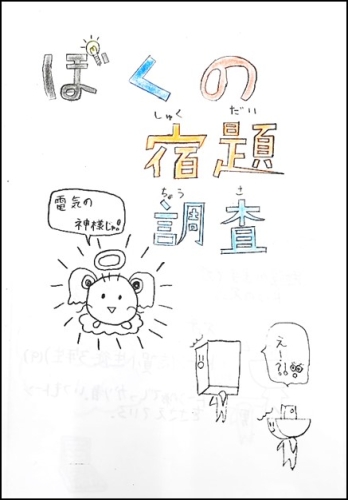 ぼくの
しゅく だい
宿題
ちょう さ
調査
電気の
神様じゃ!
え!?